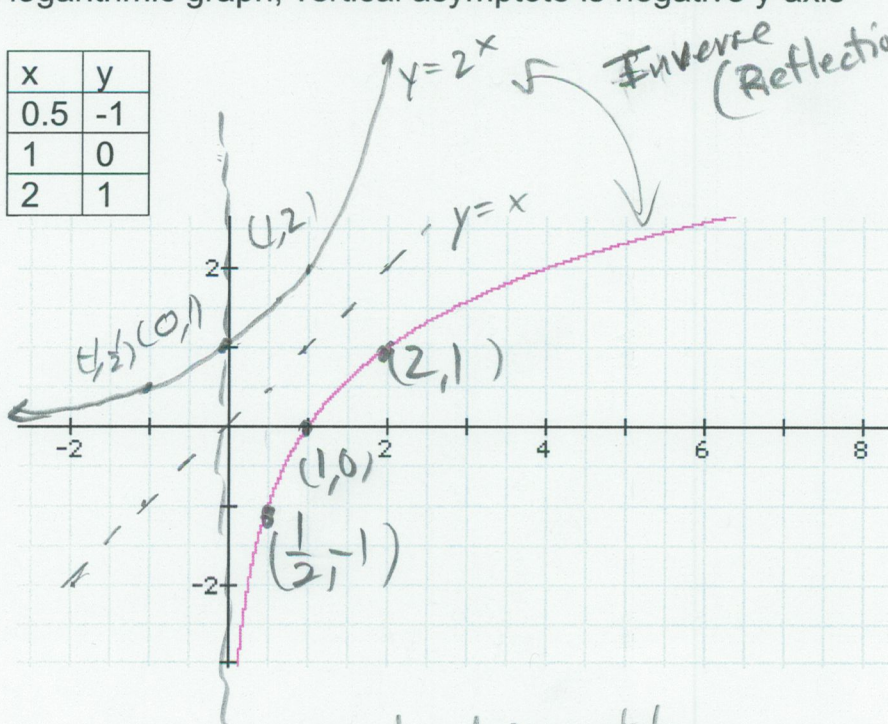 logarithmic graph, vertical asymptote is negative y-axis
x y
0.5 -1
1 0
2 1
y=2^x
Inverse
(Reflectio
(1,2)
y=x
2
(-1,1/2) (0,1)
(2,1)
-2 2 4 6 8
(1,0)
(1/2,-1)
-2